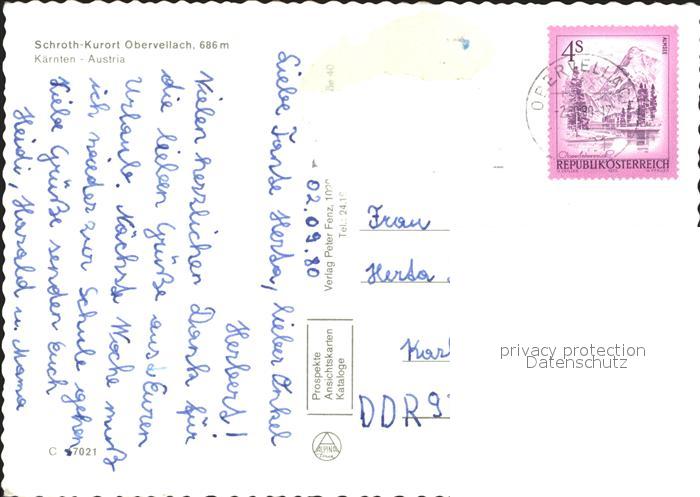 Schroth-Kurort Obervellach, 686 m
Kärnten - Austria
02.09.80
Liebe Tante Herta, lieber Onkel
Herbert!
Vielen herzlichen Dank für
die lieben Grüße aus Euren
Urlaub. Nächste Woche muß
ich wieder zur Schule gehen.
Liebe Grüße senden Euch
Heidi, Harald u. Mama
Verlag Peter Fenz,
Tel.: 24
Prospekte
Ansichtskarten
Kataloge
ALPINE
4 S
ALMSEE
REPUBLIK ÖSTERREICH
OBERVELLACH
Frau
Herta
Karl
DDR 9
privacy protection
Datenschutz